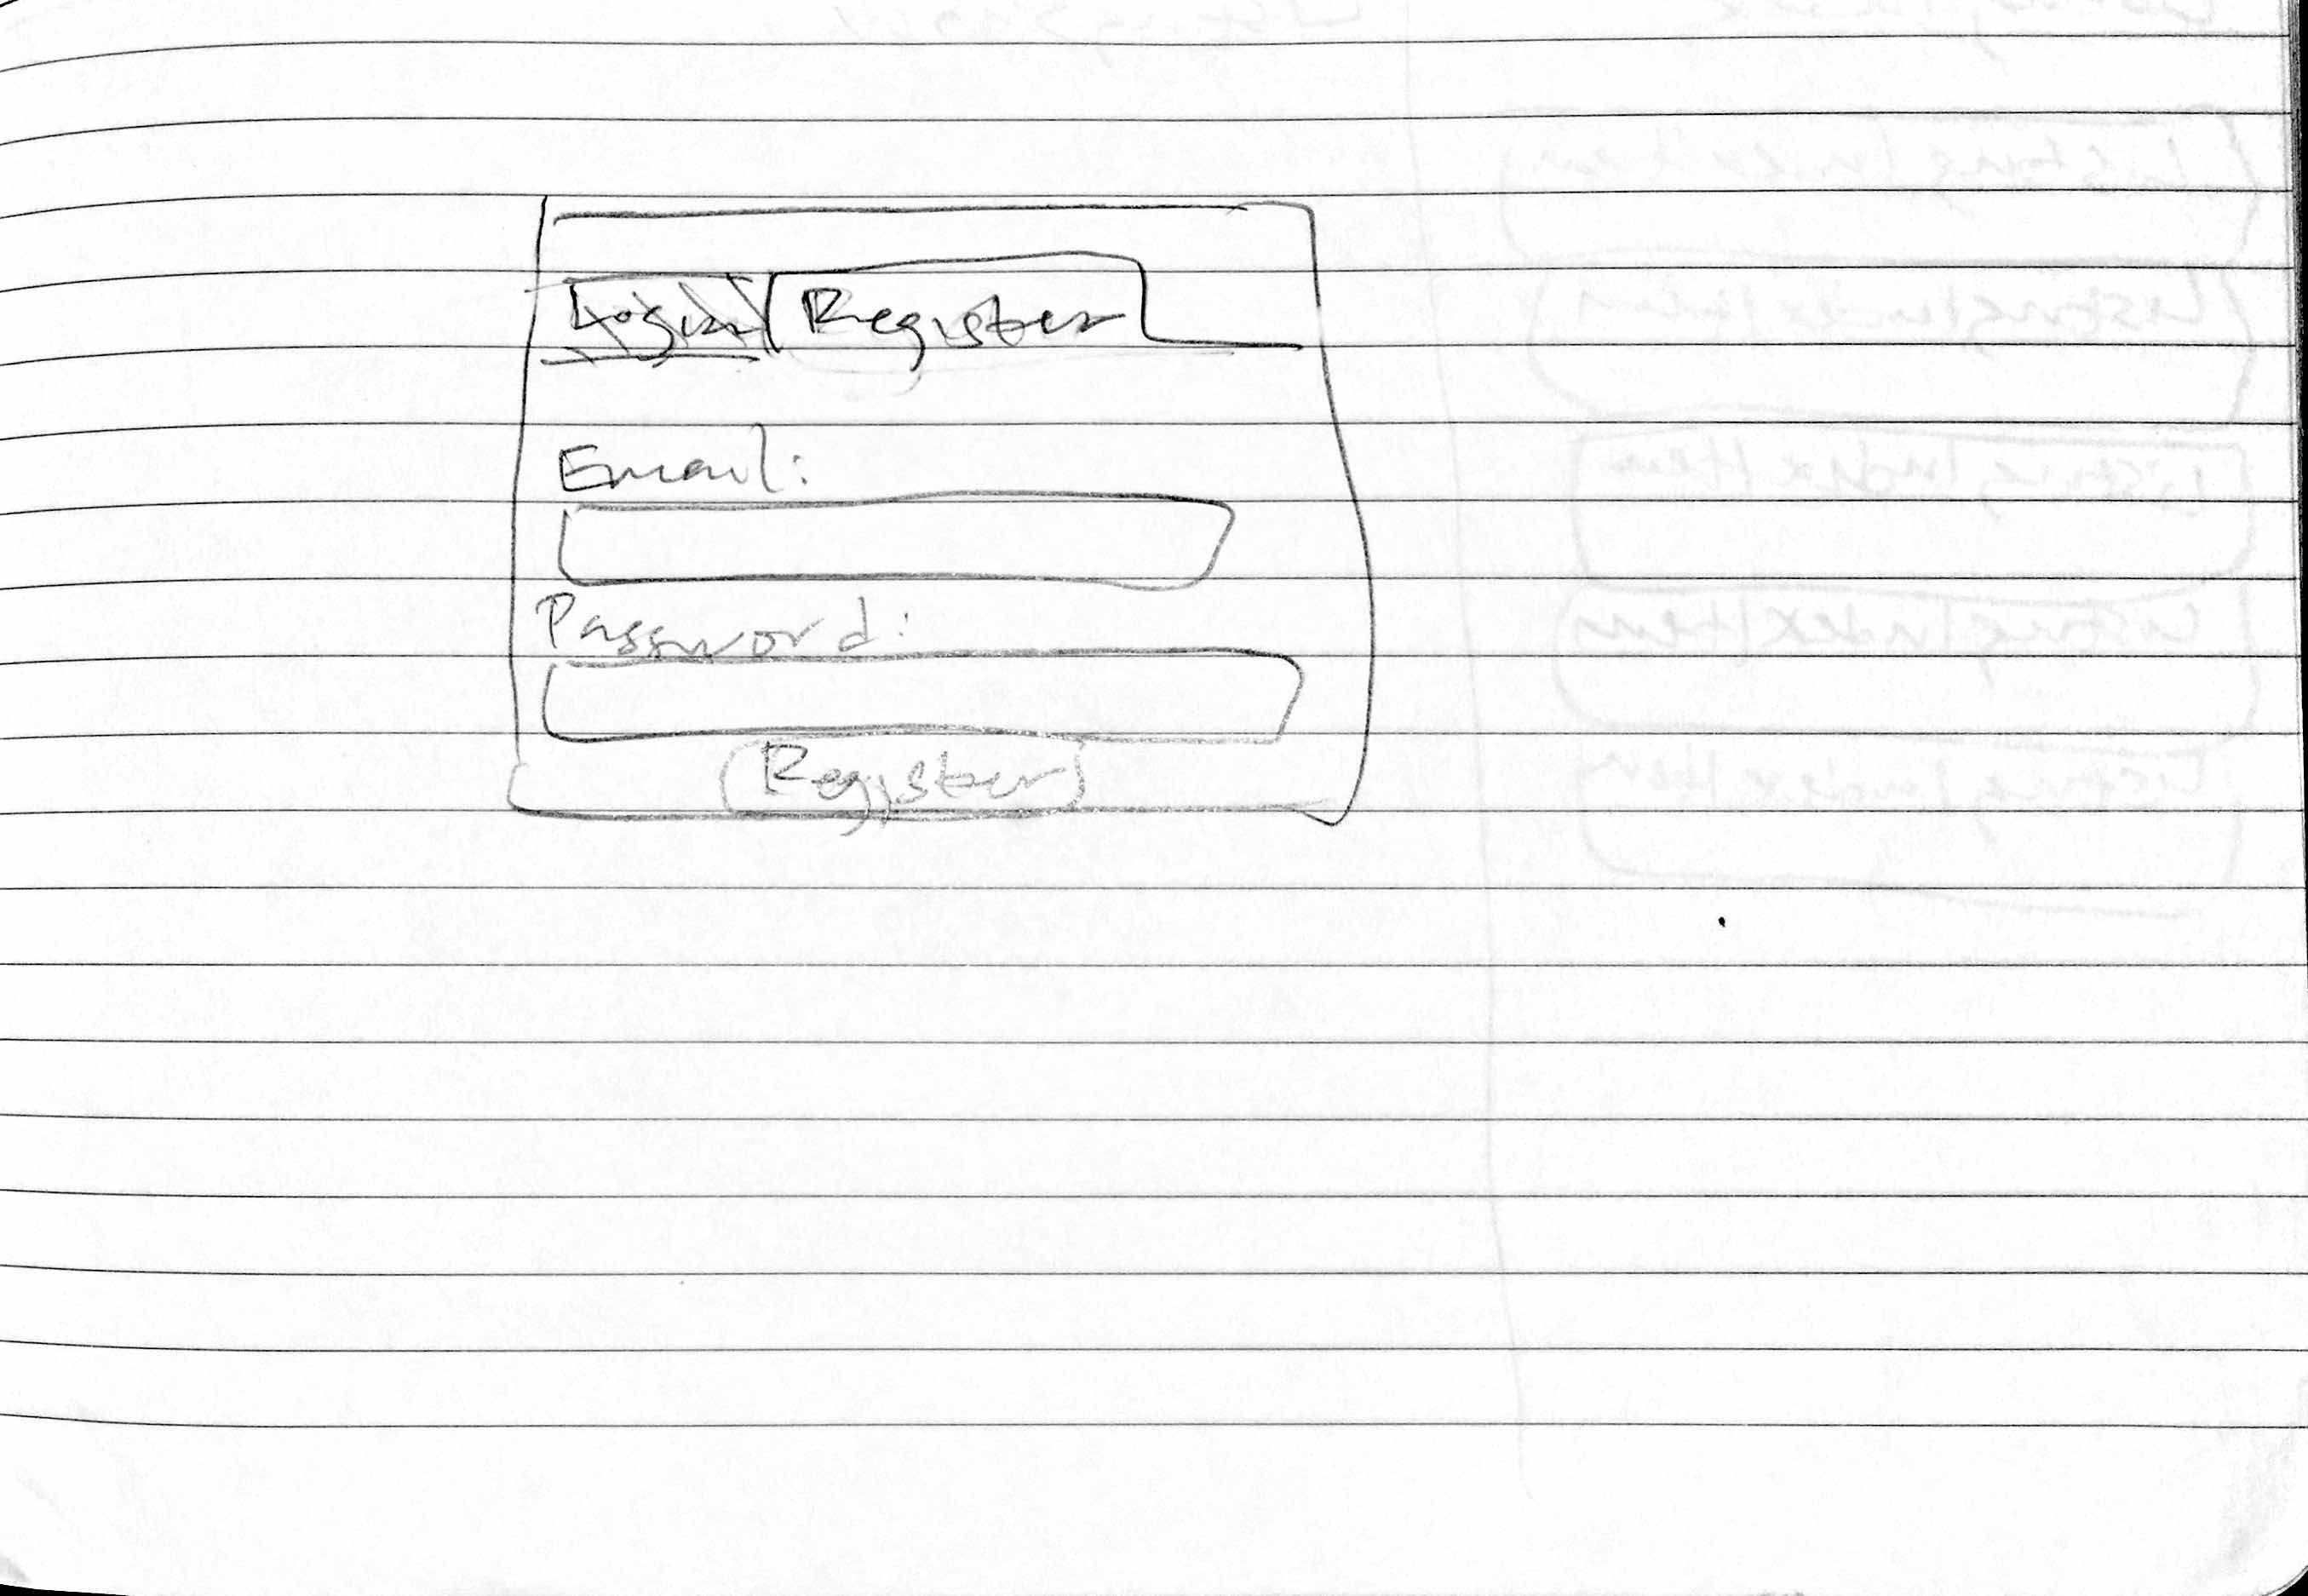 Login Register
Email:
Password:
Register